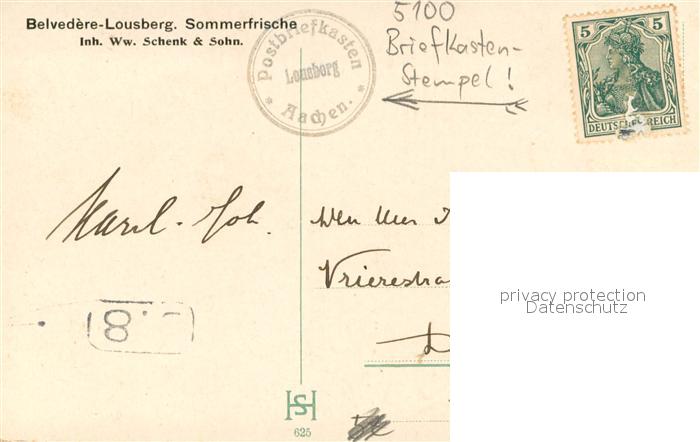 Belvedère-Lousberg. Sommerfrische
Inh. Ww. Schenk & Sohn.
Postbriefkasten
Lousberg
* Aachen. *
5100
Briefkasten-
Stempel!
5 5
DEUTSCHES REICH
Karl-Joh.
Vrierestra
D
privacy protection
Datenschutz
8.
HS
625